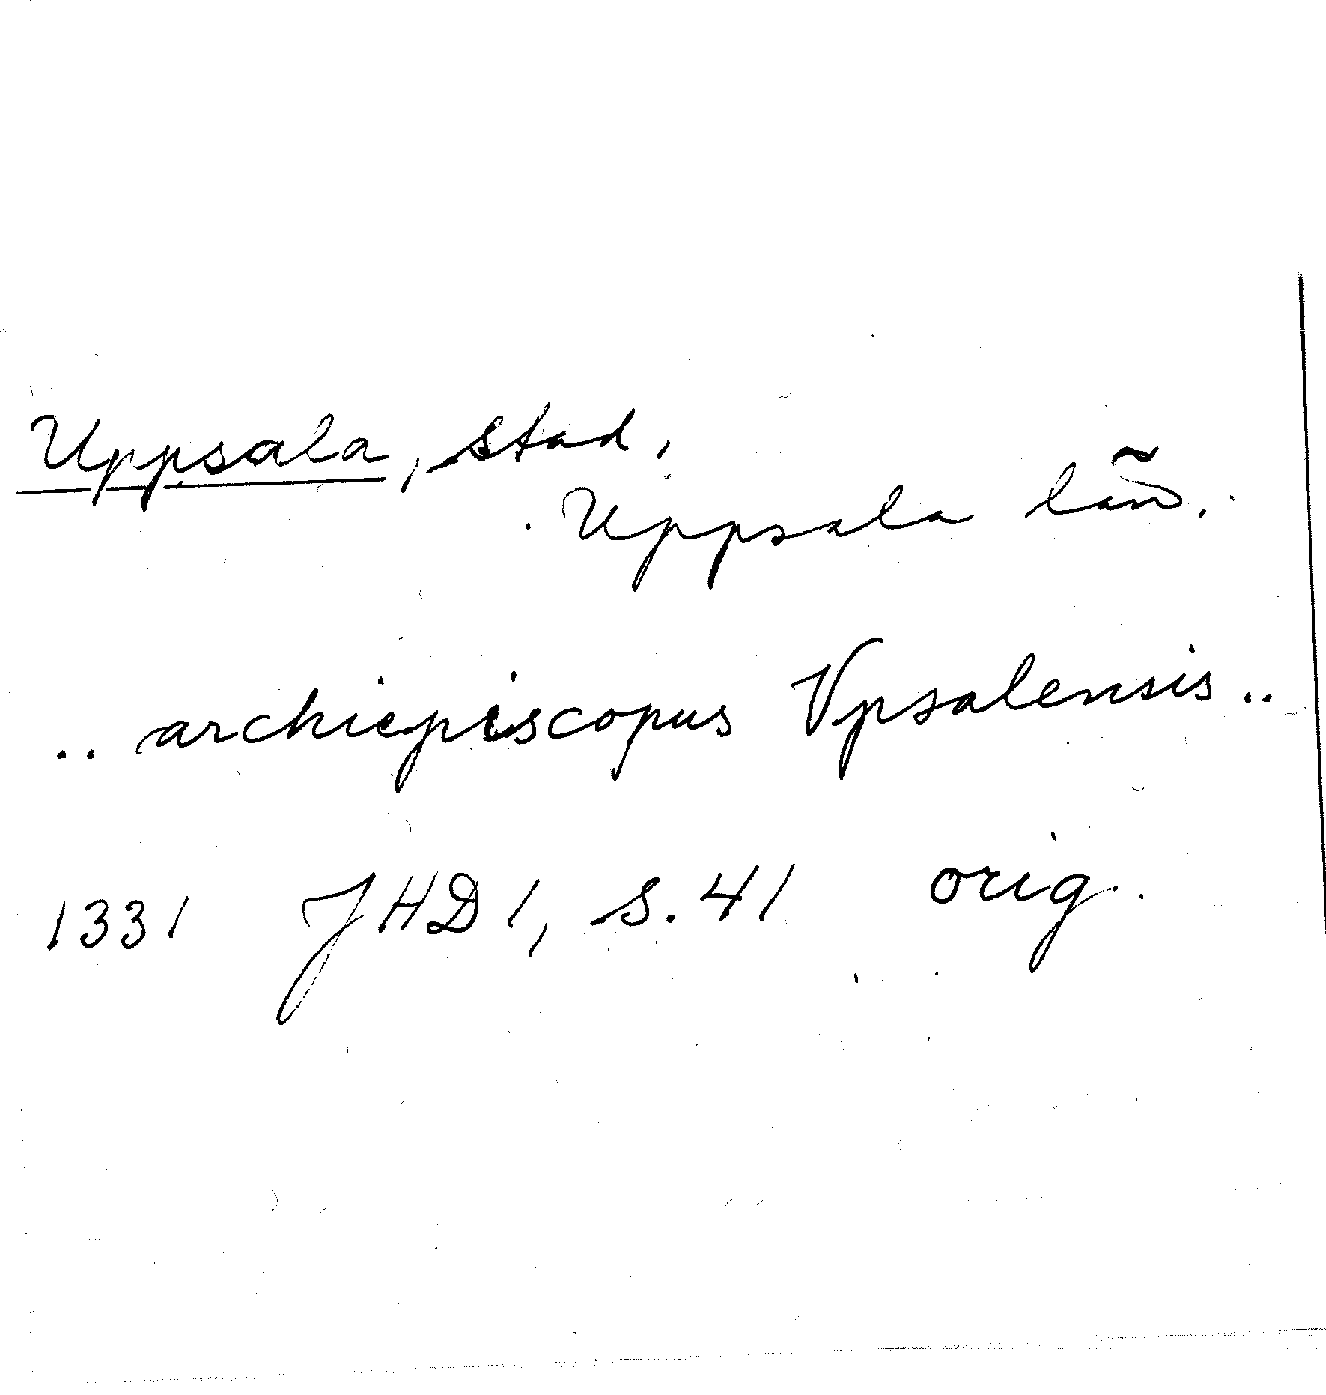 Uppsala, stad,
Uppsala län.
.. archiepiscopus Vpsalensis ..
1331 JHD 1, s. 41 orig.